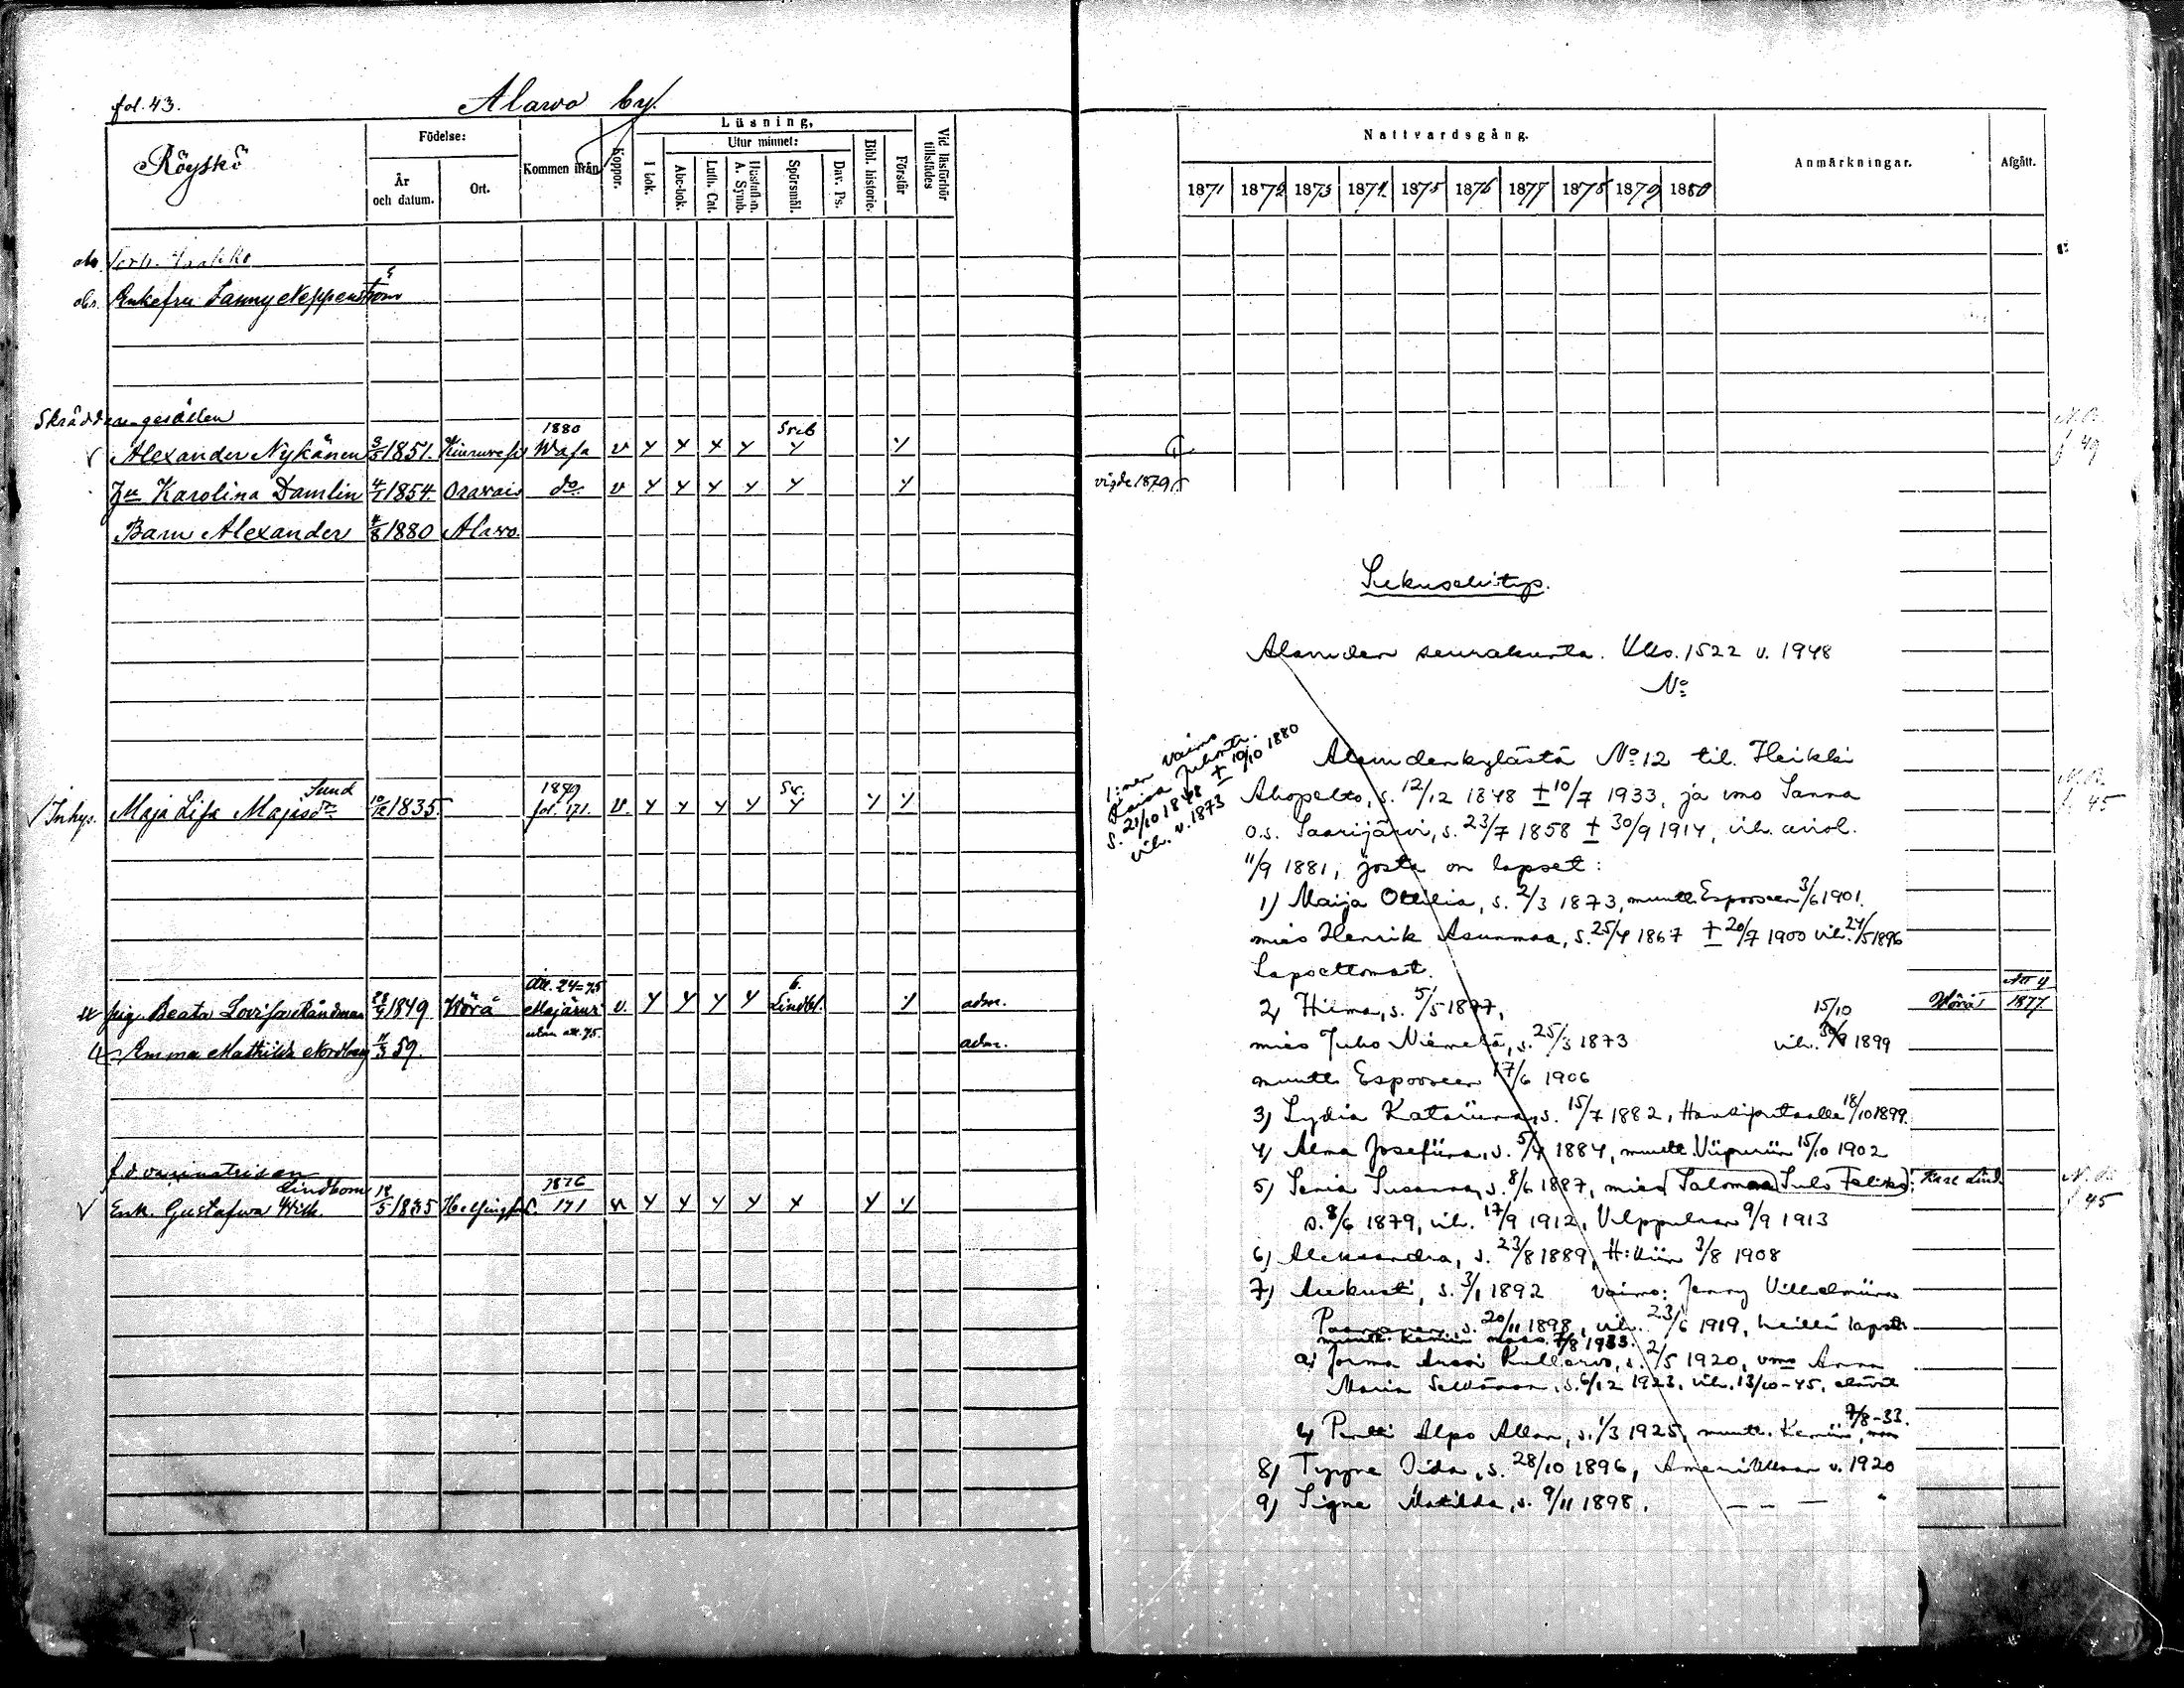 fol. 43.
Alawo by.
Röyskö
Födelse:
År och datum.
Ort.
Kommen ifrån
Koppor.
Läsning,
Utur minnet:
I bok.
Abc-bok.
Luth. Cat.
Hustaflan. A. Symb.
Spörsmål.
Dav. Ps.
Bibl. historie.
Förstår
Vid läsförhör tillstädes
Enkefru Fanny Neppenström
Skräddaregesällen
1880
Alexander Nykänen 3/5 1851. Wasa v
Hu Karolina Damlin 4/1 1854 Oravais do v
Barn Alexander 4/8 1880 Alavo.
Sund
1879
Inhys. Maja Lisa Majasdr 10/12 1835. fol. 171. v.
pig. Beata Lovisa Råndman 1849 Wörå v. Lindbl. adm.
Emma Mathilda Nordberg 4/3 59. adm.
Lindbom
1876
Enk. Gustafva Wilh. 18/5 1835 171
Nattvardsgång.
Anmärkningar.
Afgått.
1871 1872 1873 1874 1875 1876 1877 1878 1879 1880
vigde 1879
N.B. f 49
N.B. f. 45
Wörå 1877
N.B. f 45
Sukuselvitys.
Alavuden seurakunta. Kks. 1522 v. 1948
No
1:nen vaimo
Kaisa Juhontr.
s. 21/10 1848 ± 10/10 1880
vih. v. 1873
Alavudenkylästä No 12 til. Heikki
Ahopelto, s. 12/12 1848 ± 10/7 1933, ja vmo Sanna
o.s. Saarijärvi, s. 23/7 1858 ± 30/9 1914, vih. aviol.
11/9 1881, josta on lapset:
1) Maija Ottilia, s. 2/3 1873, muutt. Espooseen 3/6 1901.
mies Henrik Asunmaa, s. 25/4 1867 ± 20/7 1900 vih. 24/5 1896
Lapsettomat.
2) Hilma, s. 5/5 1877,
15/10
mies Juho Niemelä, s. 25/3 1873 vih. 30/9 1899
muutt. Espooseen 17/6 1906
3) Lydia Katariina, s. 15/7 1882, Hankipudaalle 18/10 1899.
4) Alma Josefiina, s. 5/4 1884, muutt. Viipuriin 15/10 1902
5) Senia Susanna, s. 8/6 1887, mies Salomaa Sulo Feliks;
s. 8/6 1879, vih. 17/9 1912, Vilppulaan 9/9 1913
6) Aleksandra, s. 23/8 1889, H:kiin 3/8 1908
7) Aukusti, s. 3/1 1892 vaimo: Jenny Vilhelmiina
s. 20/11 1898, vih. 23/6 1919, heillä lapset
muutt. Kemiin 7/8 1933.
a) Jorma Anssi Kullervo, s. 2/5 1920, vmo Anna
Maria s. 6/12 1923, vih. 13/10-45, elävät
7/8-33.
b) Pentti Alpo Allan, s. 1/3 1925, muutt. Kemiin
8) Tyyne Iida, s. 28/10 1896, Amerikkaan v. 1920
9) Signe Matilda, s. 9/11 1898. — — — "